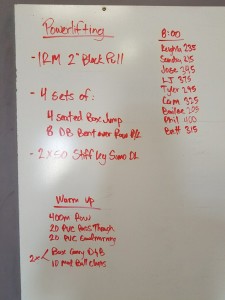 Powerlifting
- 1RM 2" Block Pull
- 4 sets of:
4 seated Box Jump
8 DB Bent over Row
- 2x50 Stiff leg Sumo DL
Warm up
400m Row
20 PVC Pass Through
20 PVC Goodmorning
2x
Bear
10 Med Ball
8:00
235
Sandy
Jose 395
LJ 375
Tyler 295
Cam 325
Phil 400
Brett 315